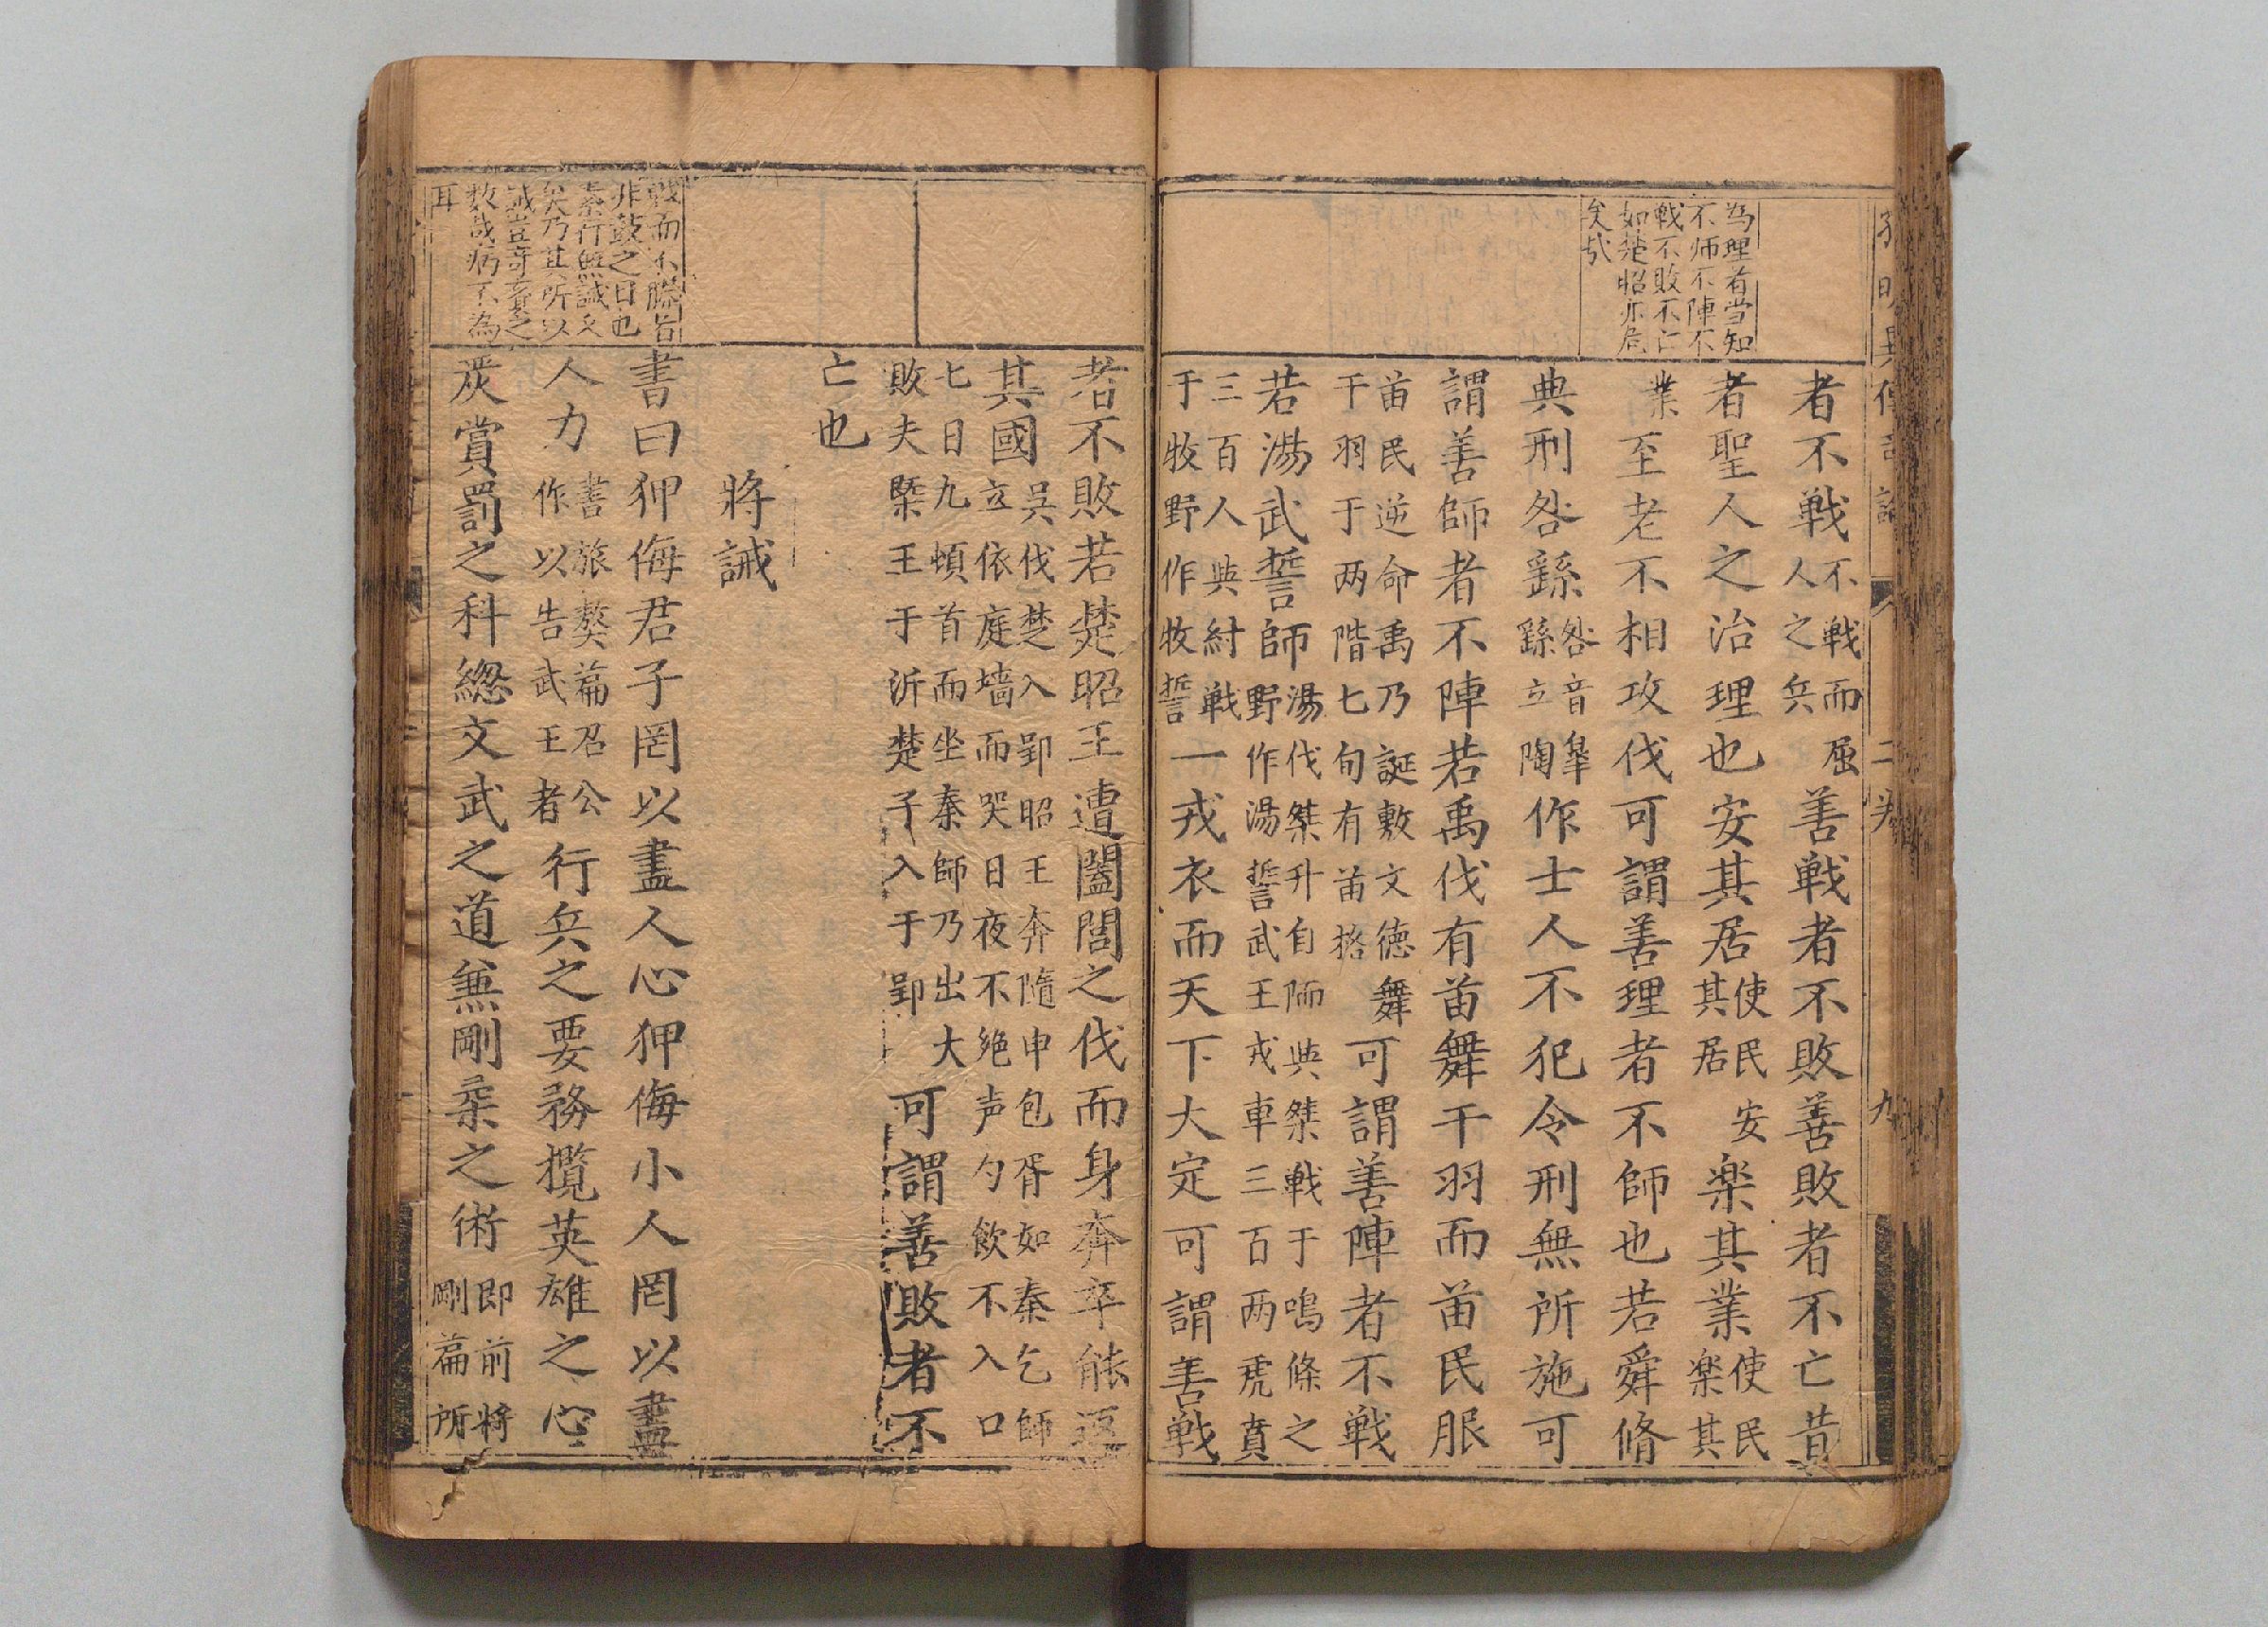 為理者當知
不师不陣不
戦不敗不亡
如楚昭亦危
矣哉
者不戦不戦而屈人之兵善戦者不敗善敗者不亡昔
者聖人之治理也安其居使民安其居楽其業使民楽其
業至老不相攻伐可謂善理者不師也若舜脩
典刑咎繇咎音皐繇立陶作士人不犯令刑無所施可
謂善師者不陣若禹伐有苗舞干羽而苗民服
苗民逆命禹乃誕敷文徳舞干羽于两階七旬有苗格可謂善陣者不戦
若湯武誓師湯伐桀升自陑與桀戦于鳴條之野作湯誓武王戎車三百两虎賁
三百人與紂戦于牧野作牧誓一戎衣而天下大定可謂善戦
戦而不勝皆
非鼓之日也
素行無誡久
矣乃其所以
誡豈竒之
数哉病不為
耳
若不敗若楚昭王遭闔閭之伐而身奔卒能返
其國吳伐楚入郢昭王奔隨申包胥如秦乞師立依庭墻而哭日夜不絶声勺飲不入口
七日九頓首而坐秦師乃出大敗夫槩王于沂楚子入于郢可謂善敗者不
亡也
將誡
書曰狎侮君子罔以盡人心狎侮小人罔以盡
人力書旅獒篇召公作以告武王者行兵之要務攬英雄之心
嚴賞罰之科緫文武之道無剛柔之術即前將剛篇所